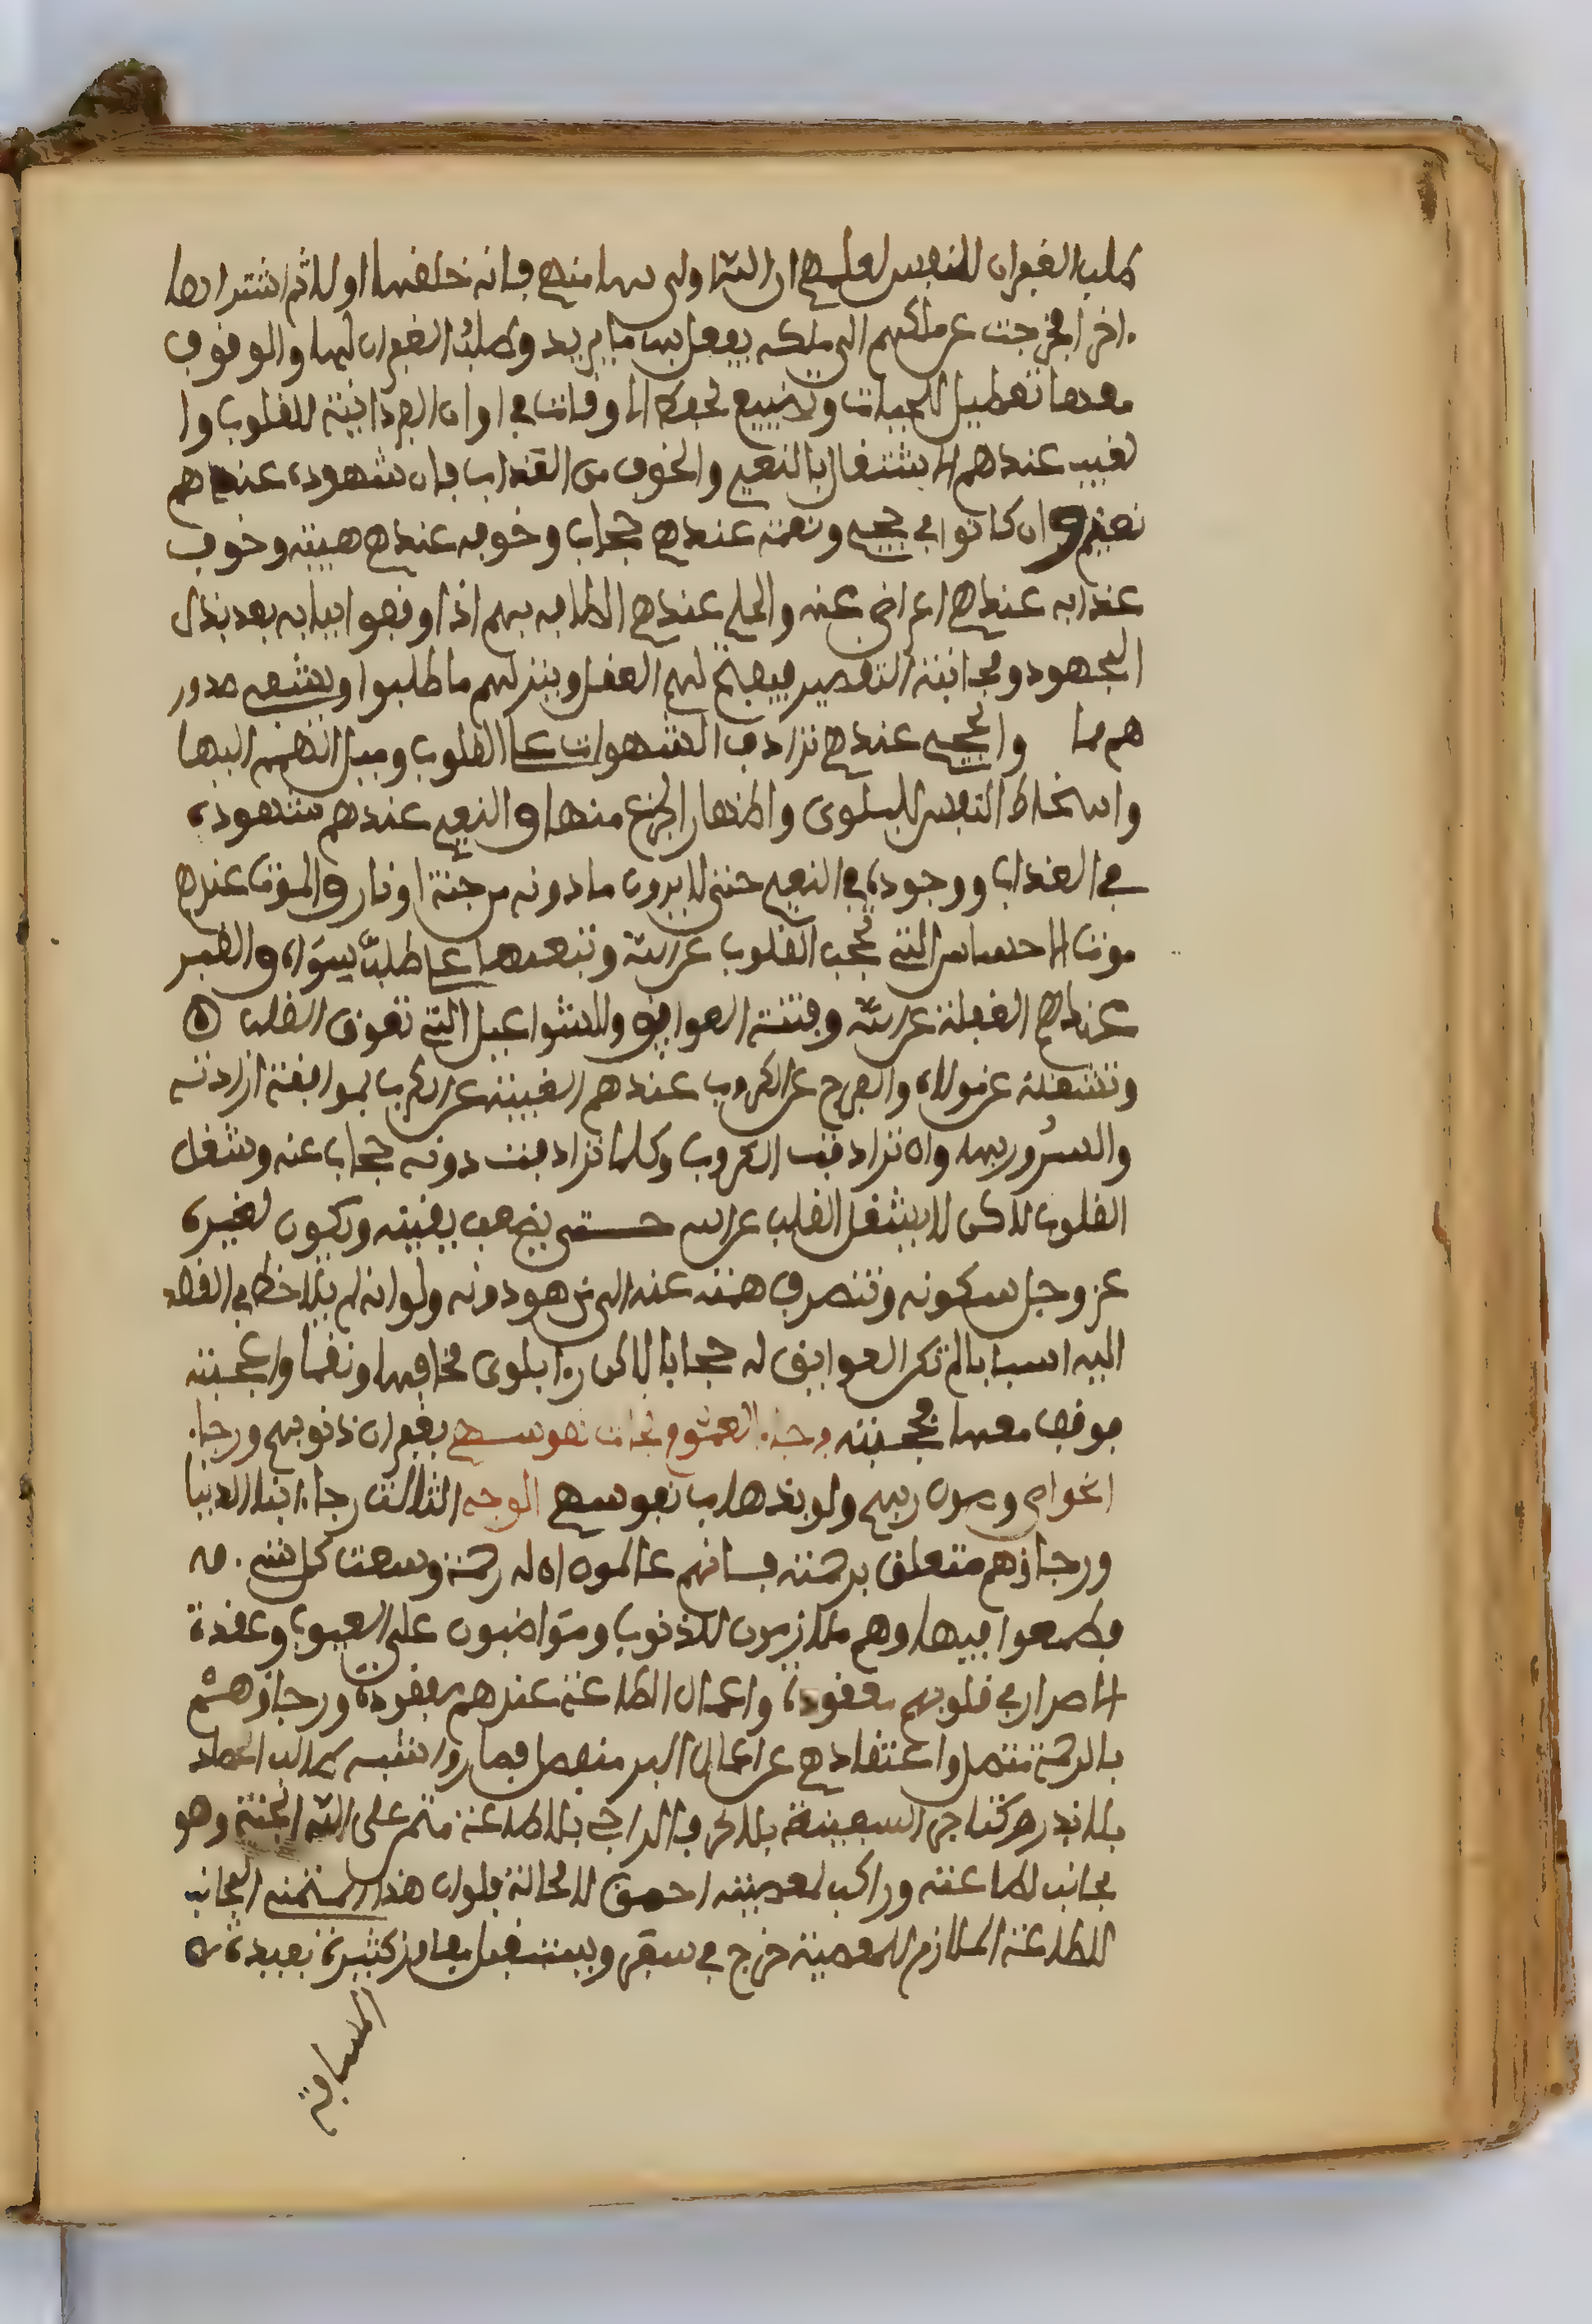 طلب الغفران للنفس لعلمهم ان الله اولى بها منهم فانه خلقها اولا ثم اشتراها
اخرا فخرجت عن ملكهم الى ملكه يفعل بها ما يريد وطلب الغفران لها والوقوف
معها تعطيل للحيات وتضييع لحفظ الاوقات في اوان الفردانية للقلوب وا
لغيب عندهم الاشتغال بالنعيم والخوف من العذاب فان شهوده عندهم
نعيم وان كانوا في جحيم ونعمته عندهم حجاب وخوفه عندهم هيبته وخوف
عذابه عندهم اعراض عنه والحلم عندهم الطافه بهم اذا وقفوا ببابه بعد بذل
المجهود ومجانبة التقصير فيفتح لهم القفل وينزلهم ما طلبوا ويشف صدور
هم مما والجحيم عندهم ترادف الشهوات على القلوب وميل النفس اليها
واسخاط النفس للبلوى واظهار الجزع منها والنعيم عندهم شهوده
في العذاب ووجوده في النعيم حتى لا يرون ما دونه من جنة او نار والموت عندهم
موت الاحساس التي تحجب القلوب عن الله وتبعدها على طلب سواه والقبر
عندهم الغفلة عن الله وفتنة العوائق والشواغل التي تعوق القلب
وتشغله عن مولاه والفرج عن الكروب عندهم الغيبة عن الكرب بموافقة ارادته
والسرور بها وان ترادفت الكروب وكلما ترادفت دونه حجاب عنه وشغل
القلوب لاكن لا يشغل القلب عن الله حتى يضعف يقينه ويكون لغيره
عز وجل سكونه وتنصرف همته عنه الى من هو دونه ولو انه لم يلاحظ في القصد
اليه اسبابا لم تكن العوايق له حجابا لاكن راء بلوى فخافها ونعما واعجبته
فوقف معها فحجبته ورجاء العموم نجات نفوسهم بغفران ذنوبهم ورجاء
الخواص وصول ربهم ولو بذهاب نفوسهم الوجه الثالث رجاء ابناء الدنيا
ورجاؤهم متعلق برحمته فانهم عالمون ان له رحمة وسعت كل شيء
فطمعوا فيها وهم ملازمون للذنوب ومواضبون على العيوب وعقدة
الاصرار في قلوبهم معقودة واعمال الطاعة عندهم مفقودة ورجاؤهم
بالرحمة متصل واعتقادهم عن اعمال البر منفصل فصاروا شبه طالب الحصاد
بلا بذر وكتاجر السفينة بلا حرف الراجي بلا طاعة متمن على الله الجنة وهو
مجانب لطاعته وراكب لمعصيته احمق لا محالة فلو ان هذا المتمني المجانب
للطاعة الملازم للمعصية خرج في سفر ويستقبل مفاوز كثيرة بعيدة
المسافة